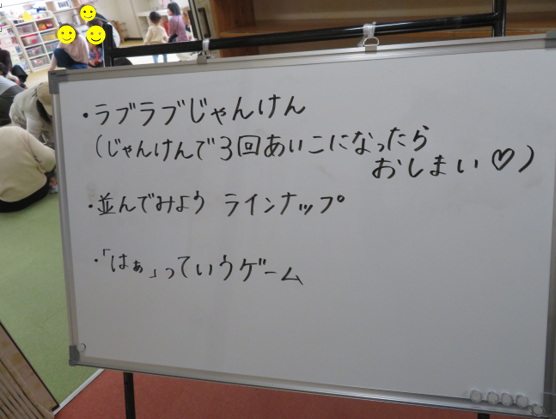 ・ラブラブじゃんけん
(じゃんけんで3回あいこになったら
おしまい♡)
・並んでみよう ラインナップ
・「はぁ」っていうゲーム